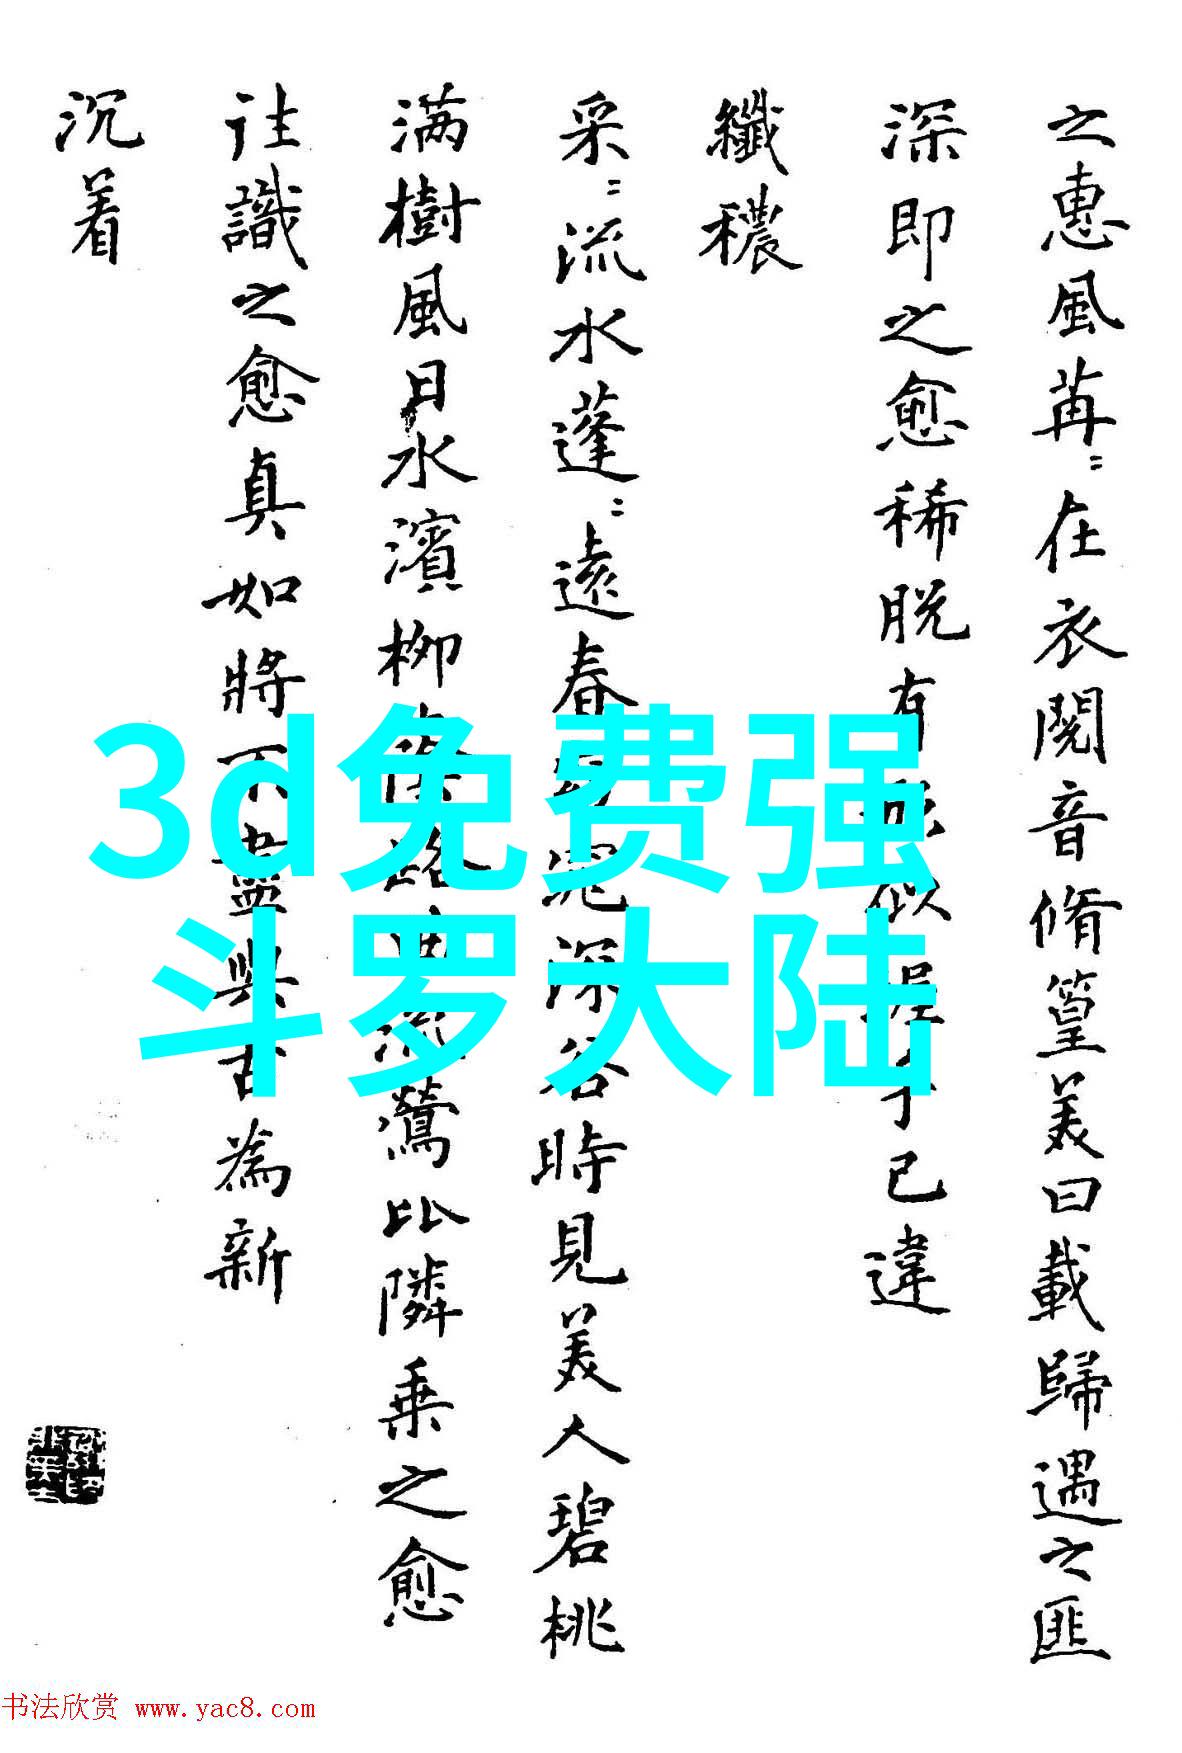 之惠風苒〻在衣閱音脩篁美曰載歸遇之匪
深即之愈稀脱有形似握手已違
纖穠
采〻流水蓬〻遠春窈窕深谷時見美人碧桃
满樹風日水濱柳陰路曲流鶯比隣乗之愈
往識之愈真如將不盡與古為新
沉着
3d免费强
斗罗大陆
书法欣赏 www.yac8.com